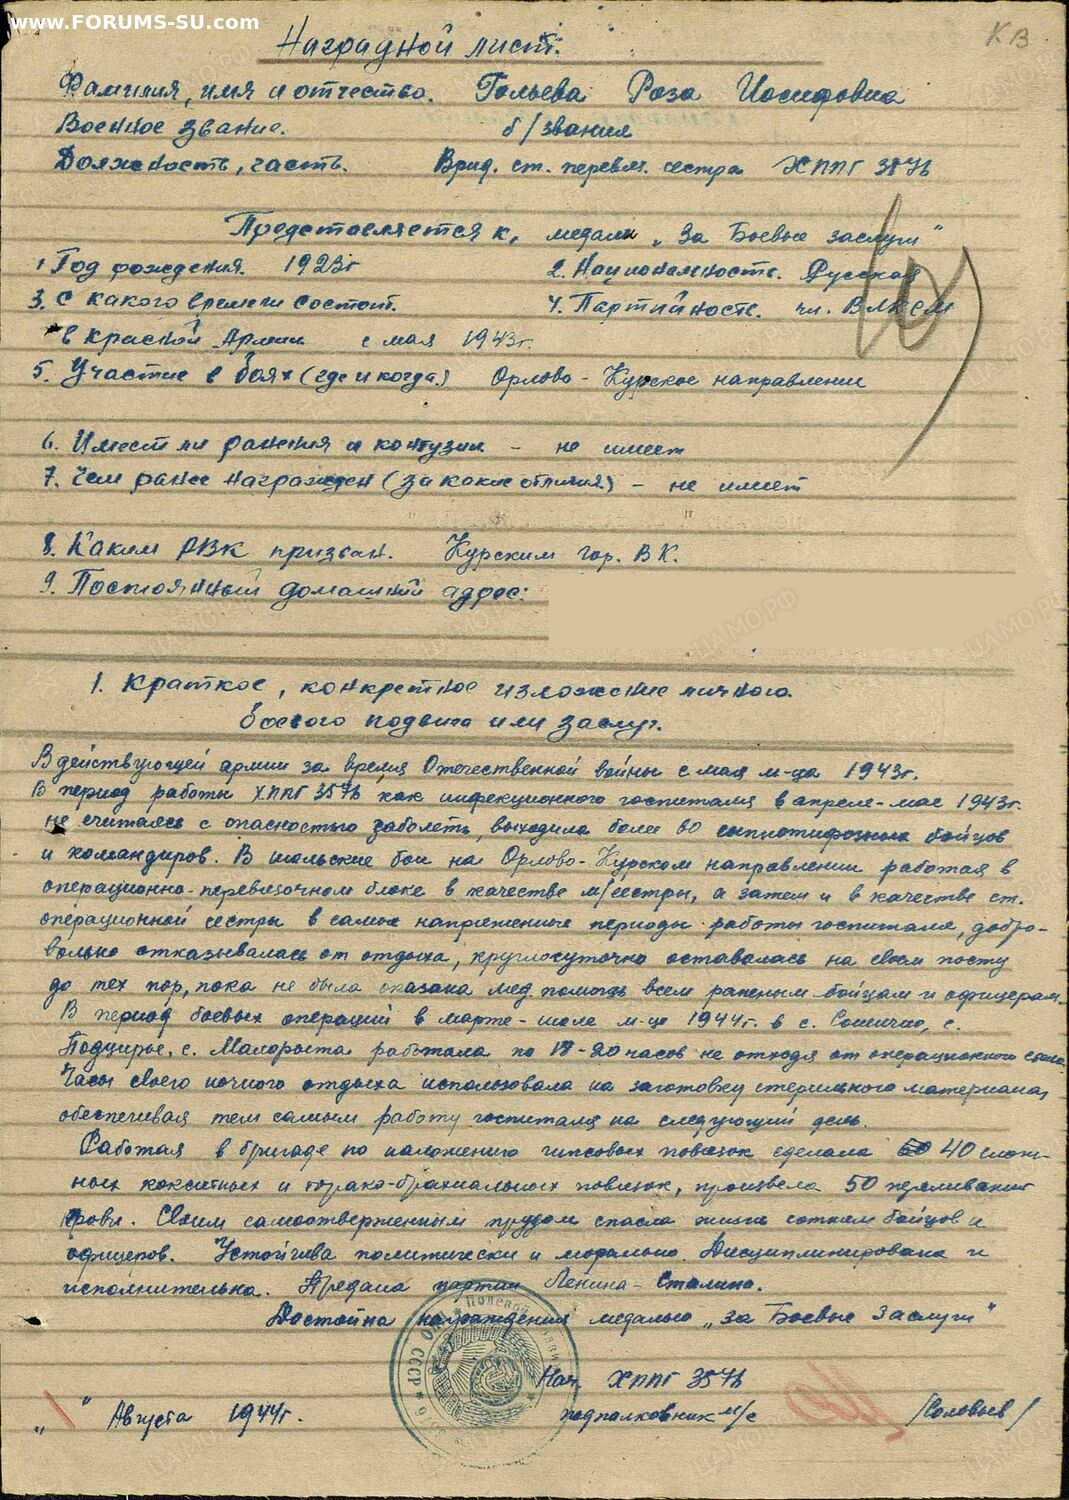 www.FORUMS-SU.com
КВ
Наградной лист.
Фамилия, имя и отчество. Гольева Роза Иосифовна
Военное звание. б/звания
Должность, часть. Врид. ст. перевяз. сестра ХППГ 3576
Представляется к, медали „За Боевые заслуги"
1 Год рождения. 1923г 2. Национальность. Русская
3. С какого времени состоит. 4. Партийность. чл. ВЛКСМ
в Красной Армии с мая 1943г.
5. Участие в боях (где и когда) Орлово-Курское направлении
6. Имеет ли ранения и контузии - не имеет
7. Чем ранее награжден (за какие отличия) - не имеет
8. Каким РВК призван. Курским гор. ВК.
9. Постоянный домашний адрес:
1. Краткое, конкретное изложение личного
боевого подвига или заслуг.
В действующей армии за время Отечественной войны с мая м-ца 1943г.
В период работы ХППГ 3576 как инфекционного госпиталя в апреле-мае 1943г.
не считаясь с опасностью заболеть, выходила более 60 сыпнотифозных бойцов
и командиров. В июльские бои на Орлово-Курском направлении работая в
операционно-перевязочном блоке в качестве м/сестры, а затем и в качестве ст.
операционной сестры в самые напряженные периоды работы госпиталя, добро-
вольно отказывалась от отдыха, круглосуточно оставалась на своем посту
до тех пор, пока не была оказана мед. помощь всем раненым бойцам и офицерам.
В период боевых операций в марте-июле м-це 1944г. в с. с.
с. Малорыта работала по 18-20 часов не отходя от операционного стола.
Часы своего ночного отдыха использовала на заготовку стерильного материала,
обеспечивая тем самым работу госпиталя на следующий день.
Работая в бригаде по наложению гипсовых повязок сделала 40 слож-
ных кокситных и торако-брахиальных повязок, произвела 50 переливаний
крови. Своим самоотверженным трудом спасла жизнь сотням бойцов и
офицеров. Устойчива политически и морально Дисциплинирована и
исполнительна. Предана партии Ленина-Сталина.
Достойна награждения медалью „за Боевые Заслуги"
Нач. ХППГ 3576
„1" Августа 1944г. подполковник м/с /Соловьев/